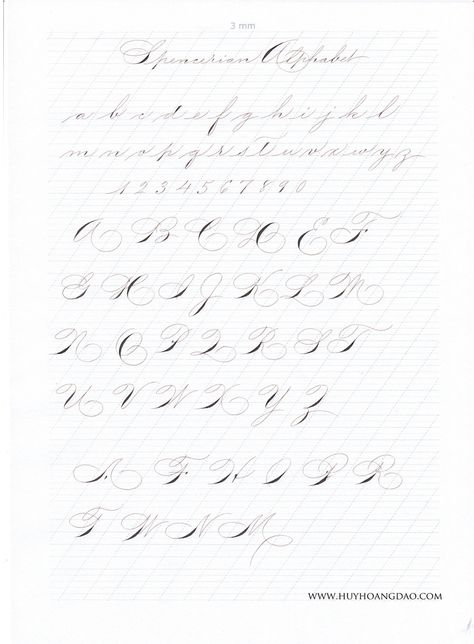 3 mm
Spencerian Alphabet
a b c d e f g h i j k l
m n o p q r s t u v x w y z
1 2 3 4 5 6 7 8 9 0
A B C D E F
G H I J K L M
N O P Q R S T
U V W X Y Z
A F H I P R
T W N M
WWW.HUYHOANGDAO.COM